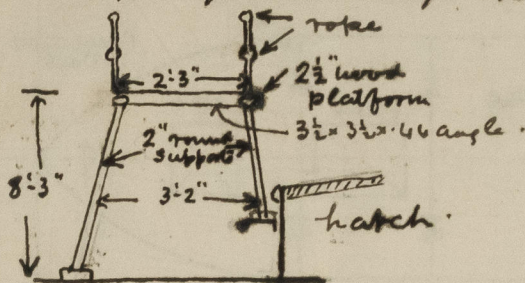 rope
2'-3"
2½" wood
platform
3½ × 3½ × .46 angle.
2" round
supports
8'-3"
3'-2"
hatch.